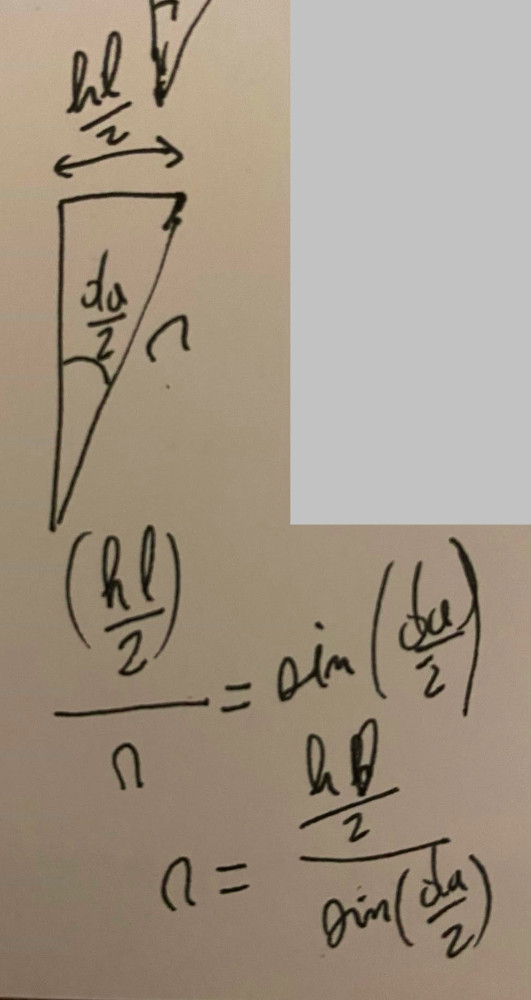 hl/2
da/2
r
(hl/2)/r = sin(da/2)
r = (hl/2)/sin(da/2)